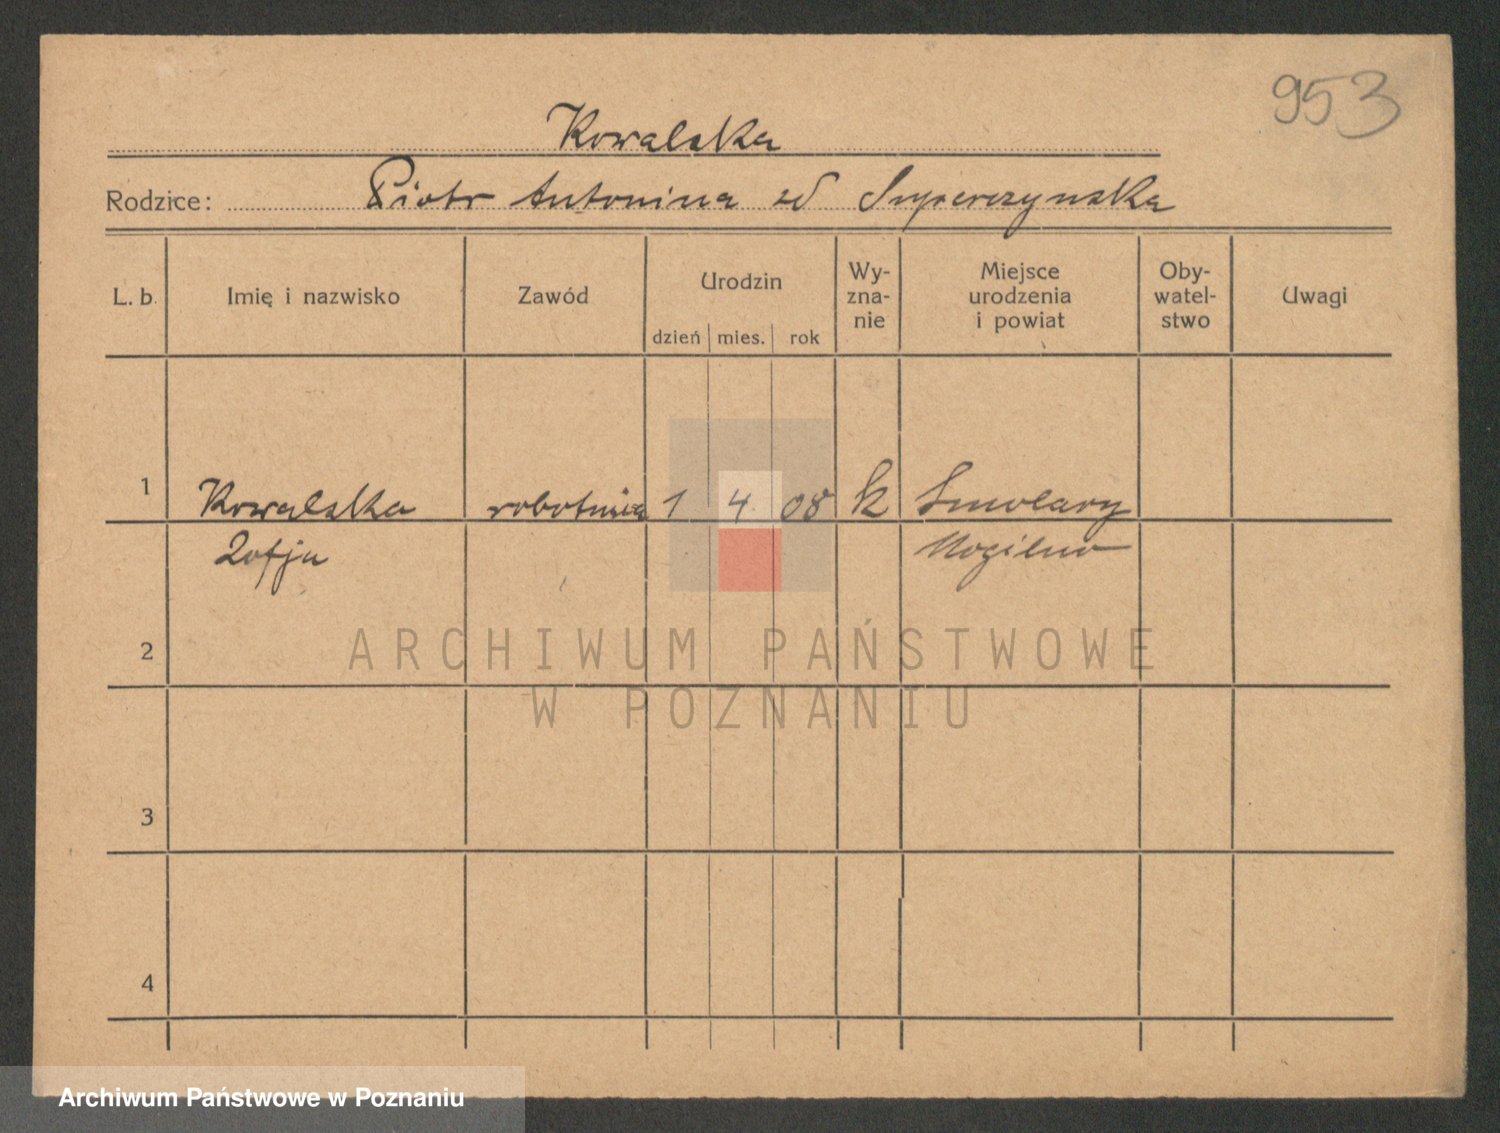 953
Kowalska
Rodzice: Piotr Antonina zd
L. b. Imię i nazwisko Zawód Urodzin dzień mies. rok Wy-zna-nie Miejsce urodzenia i powiat Oby-watel-stwo Uwagi
1 Kowalska robotnica 1 4 08 k Smolary
Zofja Mogilno
2
ARCHIWUM PAŃSTWOWE
W POZNANIU
3
4
Archiwum Państwowe w Poznaniu